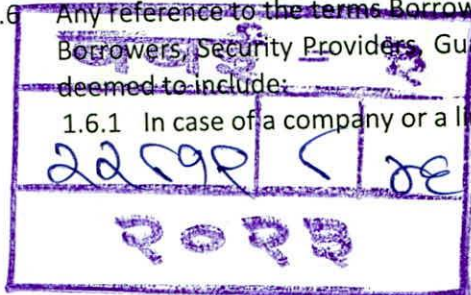 .6 Any reference to the terms Borrow
Borrowers, Security Providers, Gu
deemed to include:
1.6.1 In case of a company or a li
२२८१९ ८ ४६
२०२३